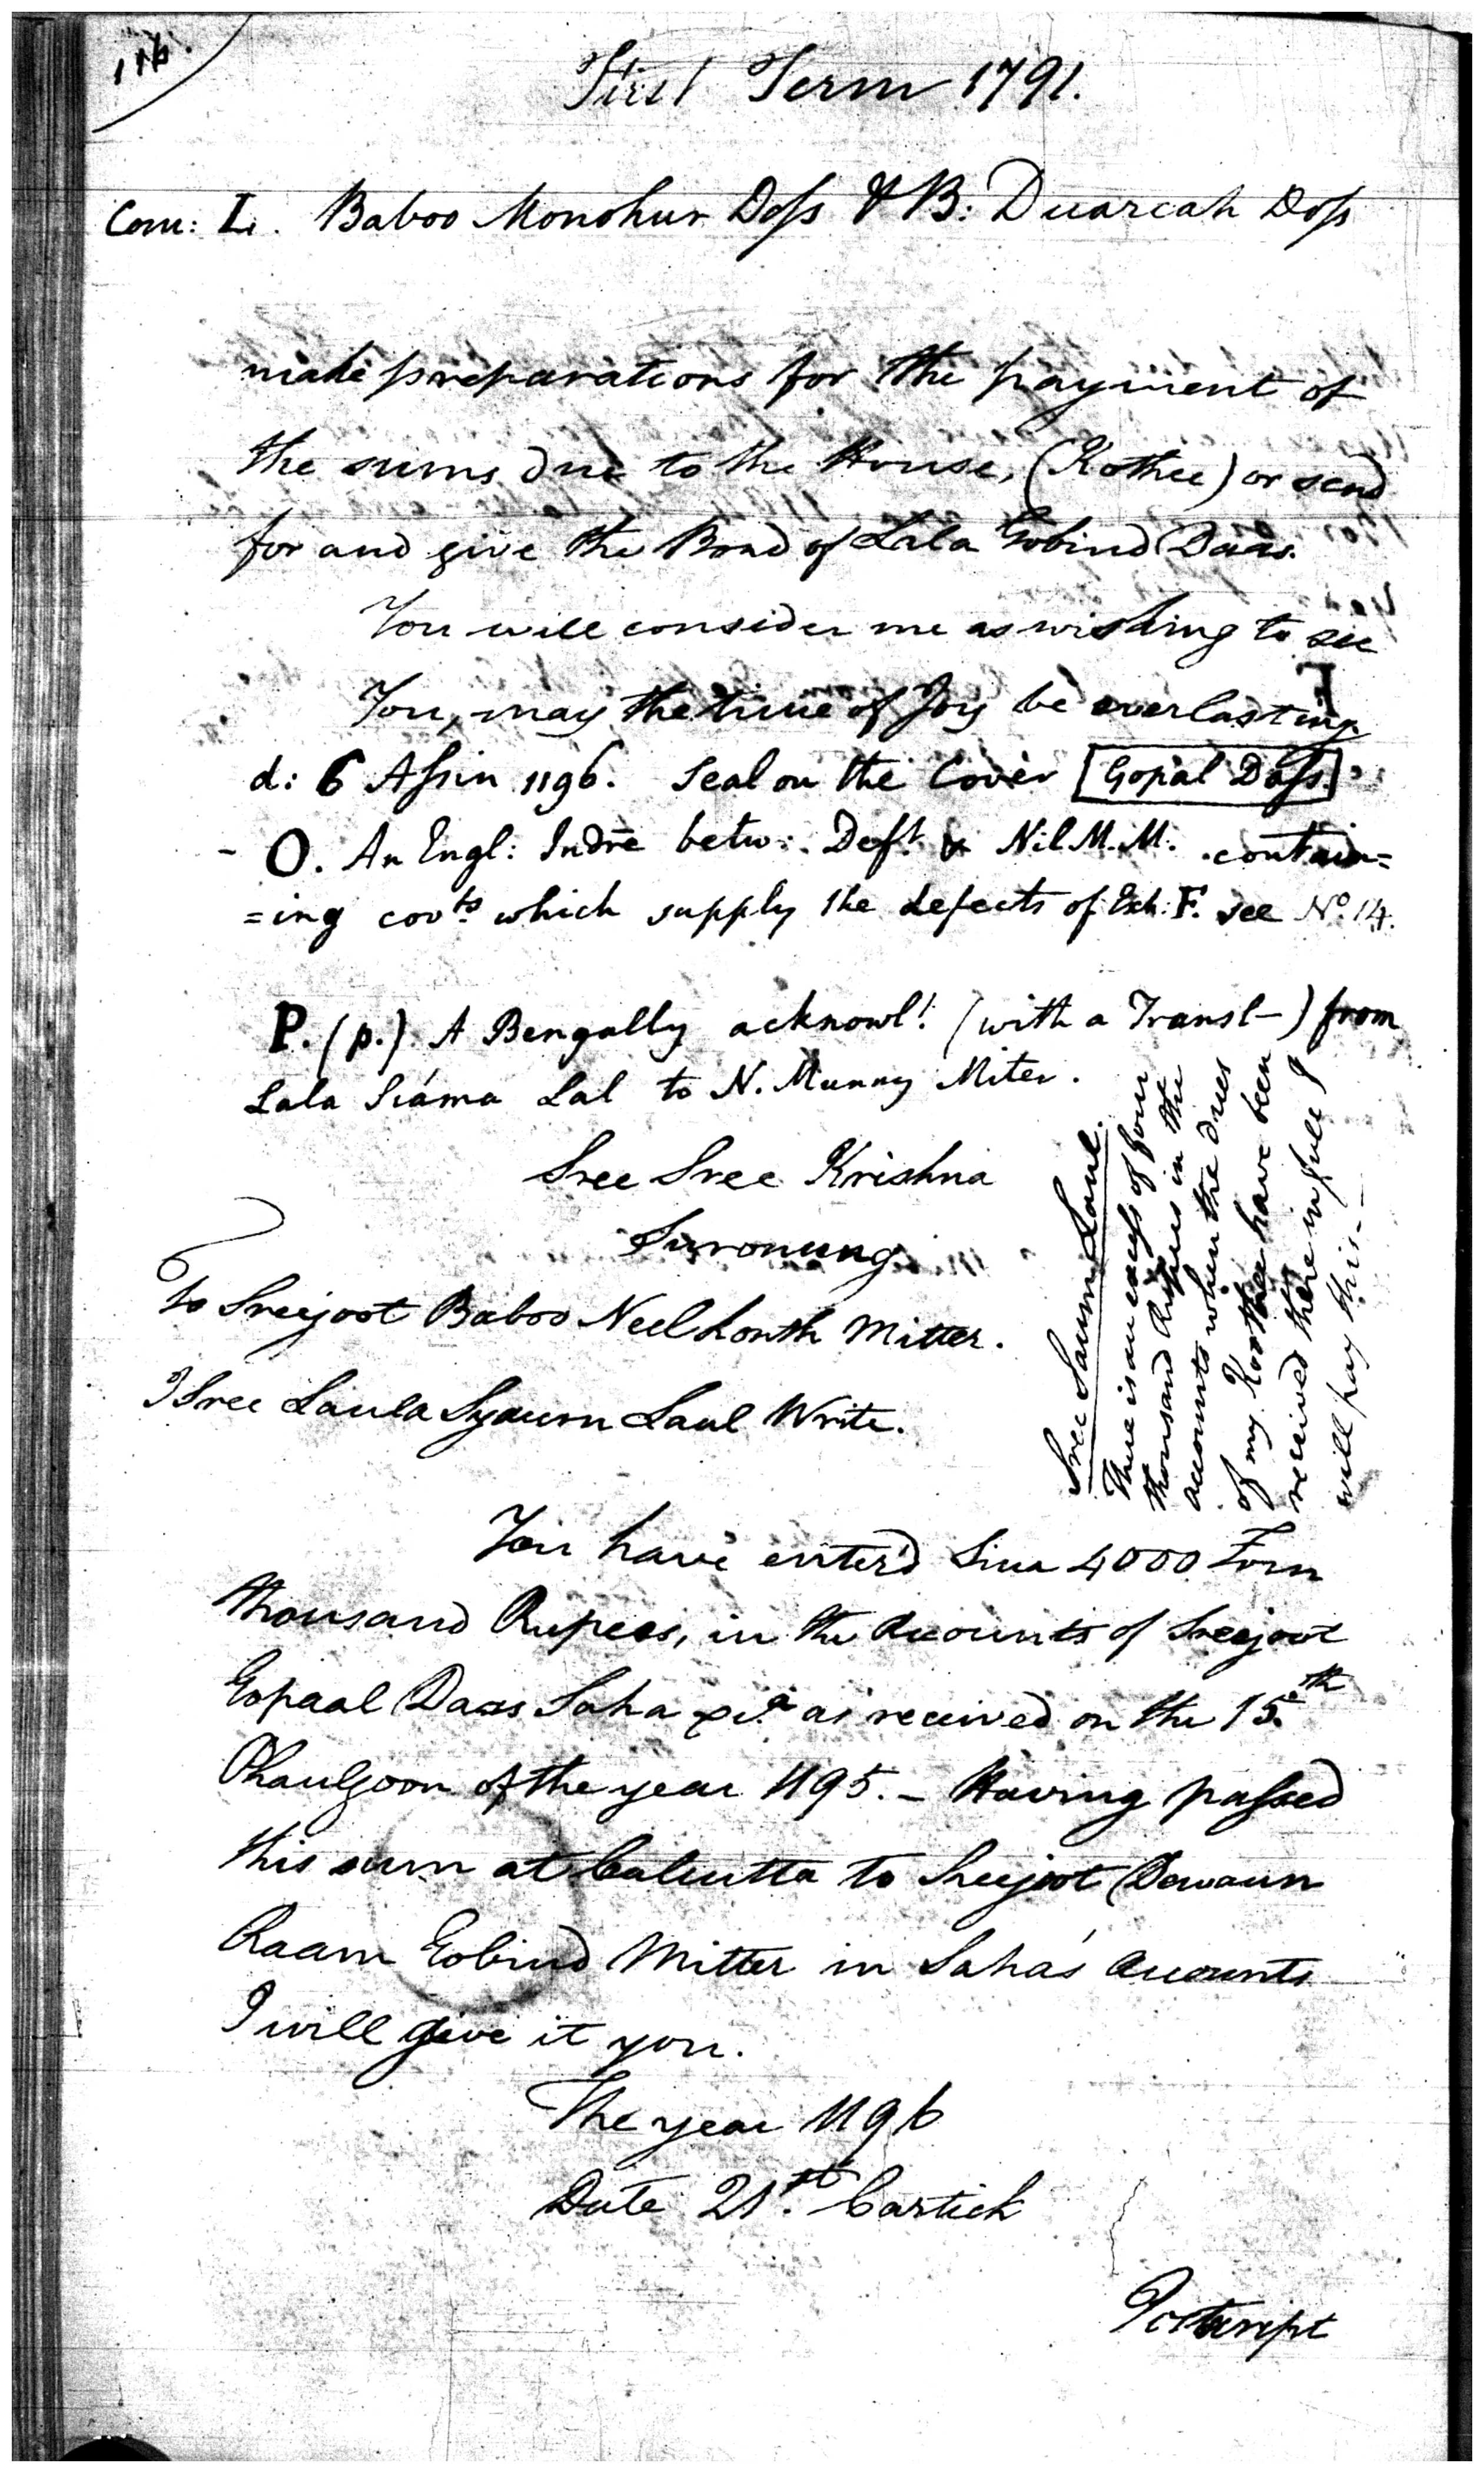 116.
First Term 1791.
Com: L. Baboo Monohur Doss & B: Duarcah Doss
made preparations for the payment of
the sums due to the House, (Kothee) or send
for and give the Bond of Lala Gobind Daas.
You will consider me as wishing to see
You, may the time of Joy be everlasting.
d: 6 Assin 1196. Seal on the Cover [Gopal Doss.]
- O. An Engl: Indre betw: Deft. & Nil M. M. contain=
=ing covts. which supply the defects of Exh: F. see No. 14.
P. (p.) A Bengally acknowl! (with a Transl-) from
Lala Siáma Lal to N. Munny Miter.
Sree Sree Krishna
Suronung
To Sreejoot Baboo Neelkonth Mitter.
I Sree Laula Syaum Laul Write.
Sree Saum Laul.
There is an excess of four
thousand Rupees in the
accounts when the dues
of my Koothee have been
received there in full I
will pay this. -
You have enter'd Sicca 4000 Four
thousand Rupees, in the Accounts of Sreejoot
Gopaal Daas Saha as received on the 15th
Phaulgoon of the year 1195. - Having passed
this sum at Calcutta to Sreejoot Dewaun
Raam Gobind Mitter in Saha's Accounts
I will give it you.
The year 1196
Date 21st. Cartick
Postscript